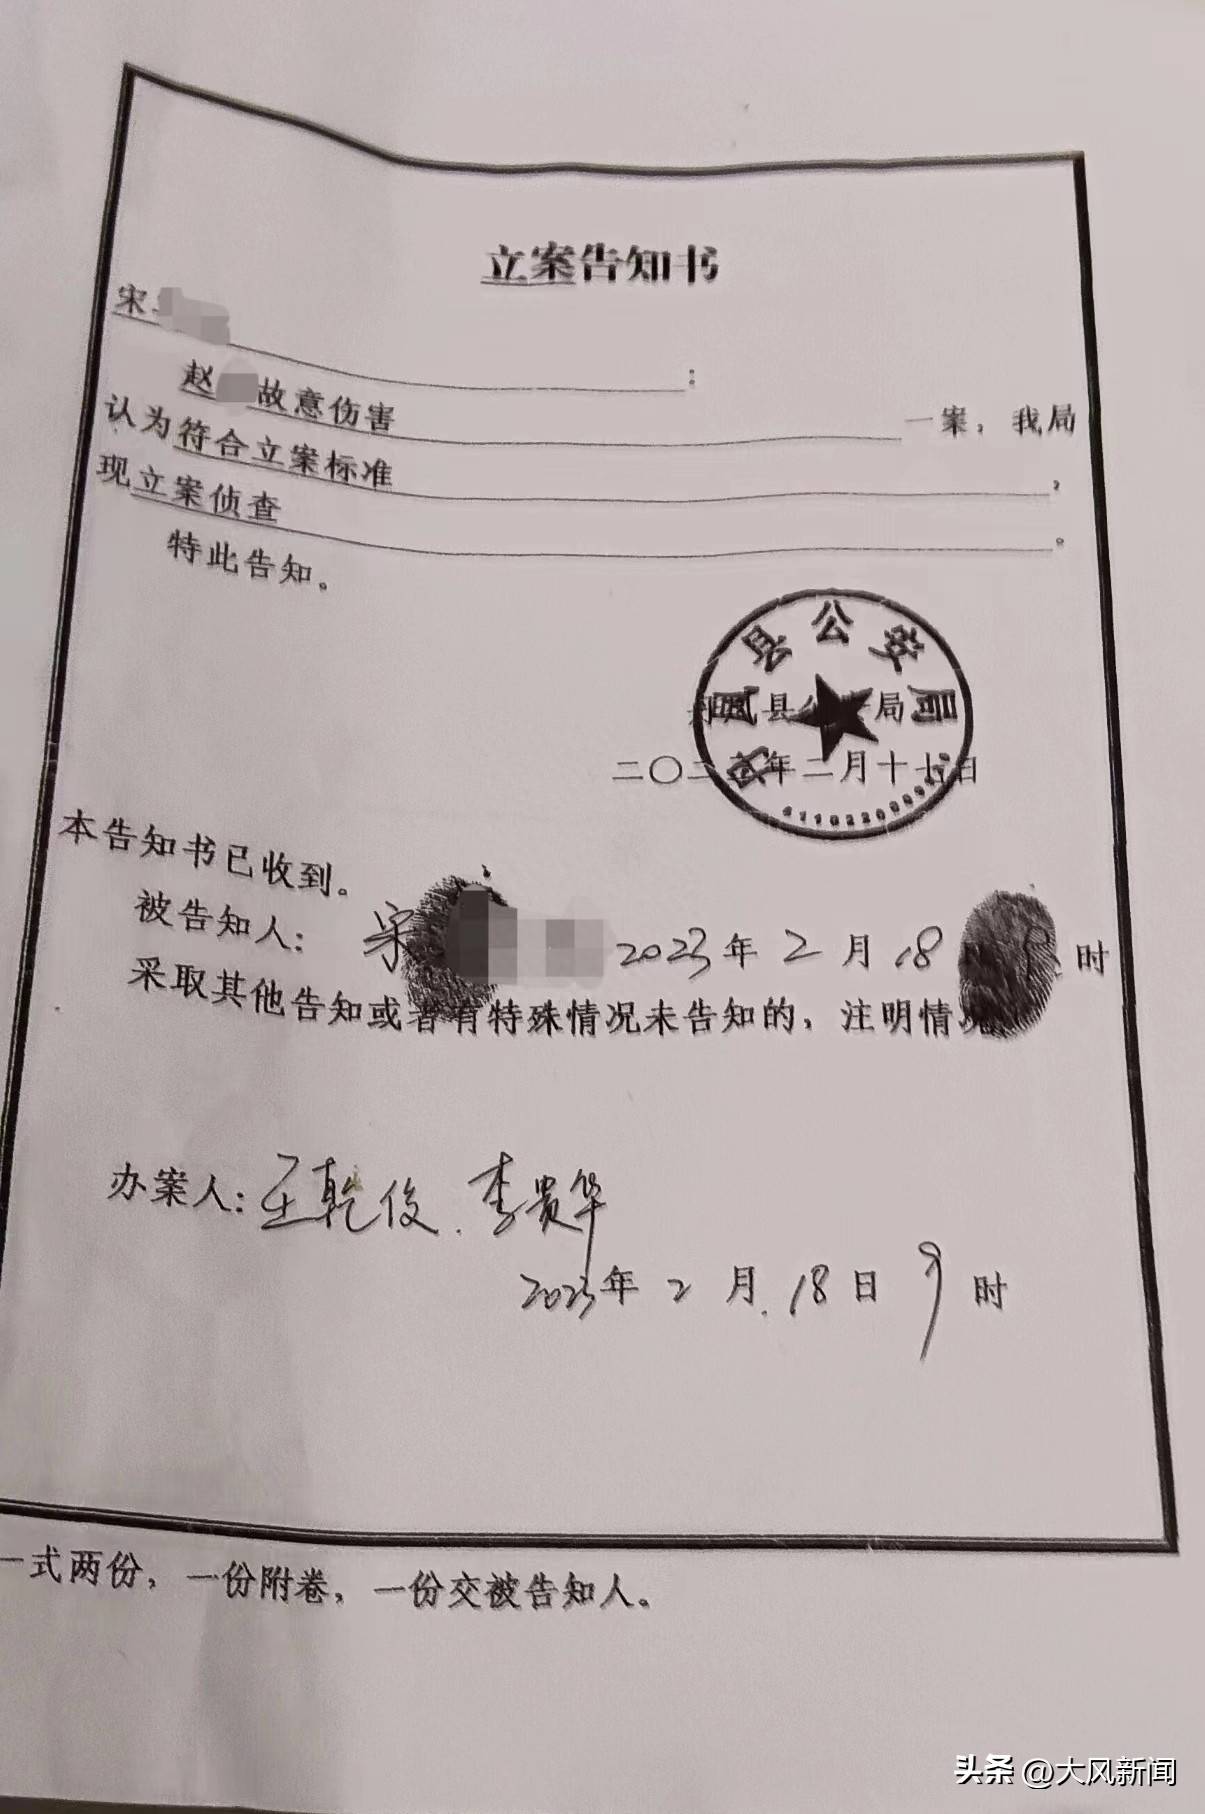 立案告知书
宋
赵 故意伤害 一案，我局
认为符合立案标准，
现立案侦查。
特此告知。
县公安局
县 局
二〇二 年二月十七日
本告知书已收到。
被告知人：宋 2023年2月18 9时
采取其他告知或者有特殊情况未告知的，注明情况
办案人：王乾俊、李贵华
2023年2月18日9时
一式两份，一份附卷，一份交被告知人。
头条 @大风新闻